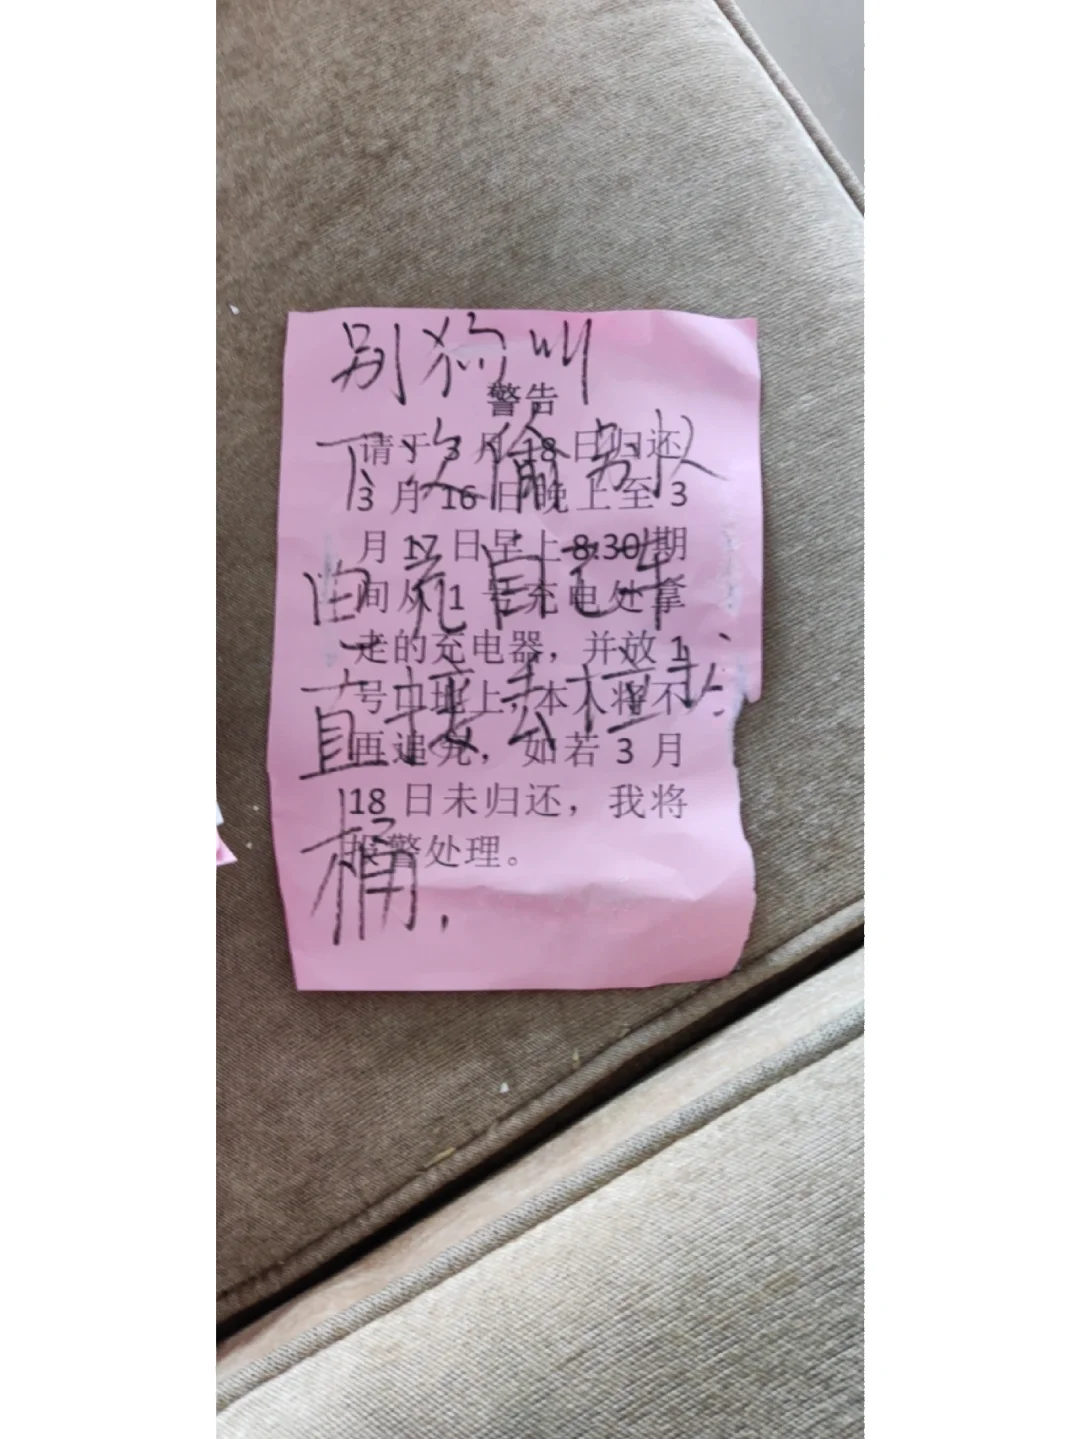 别狗叫
下次偷别人
电充自己车
直接丢垃圾
桶.
警告
请于 3 月 18 日归还
3 月 16 日晚上至 3
月 17 日早上 8:30 期
间从 1 号充电处拿
走的充电器，并放 1
号口地上，本人将不
再追究，如若 3 月
18 日未归还，我将
报警处理。